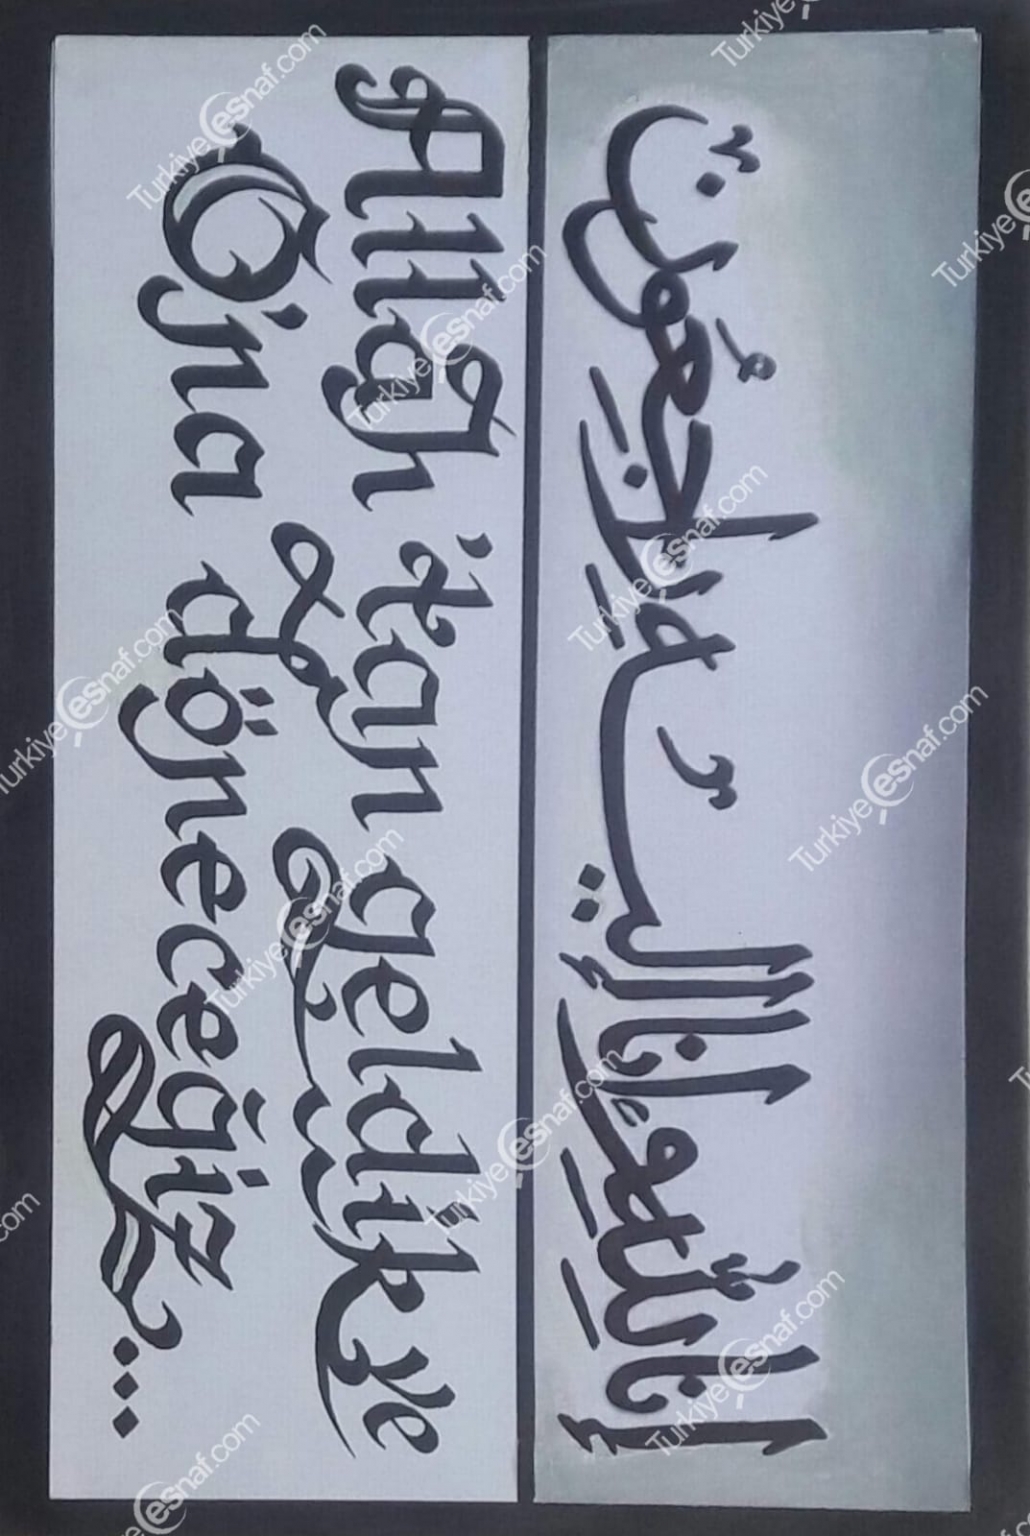 إنا لله وإنا إليه راجعون
Allah'tan geldik ve
O'na döneceğiz...
Turkiyeesnaf.com